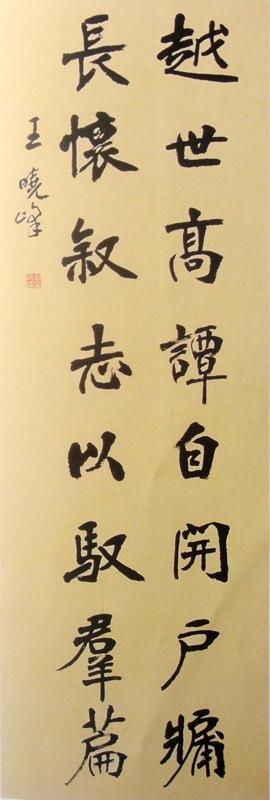 越世高譚自開戶牖
長懷叙志以馭羣篇
王曉峰